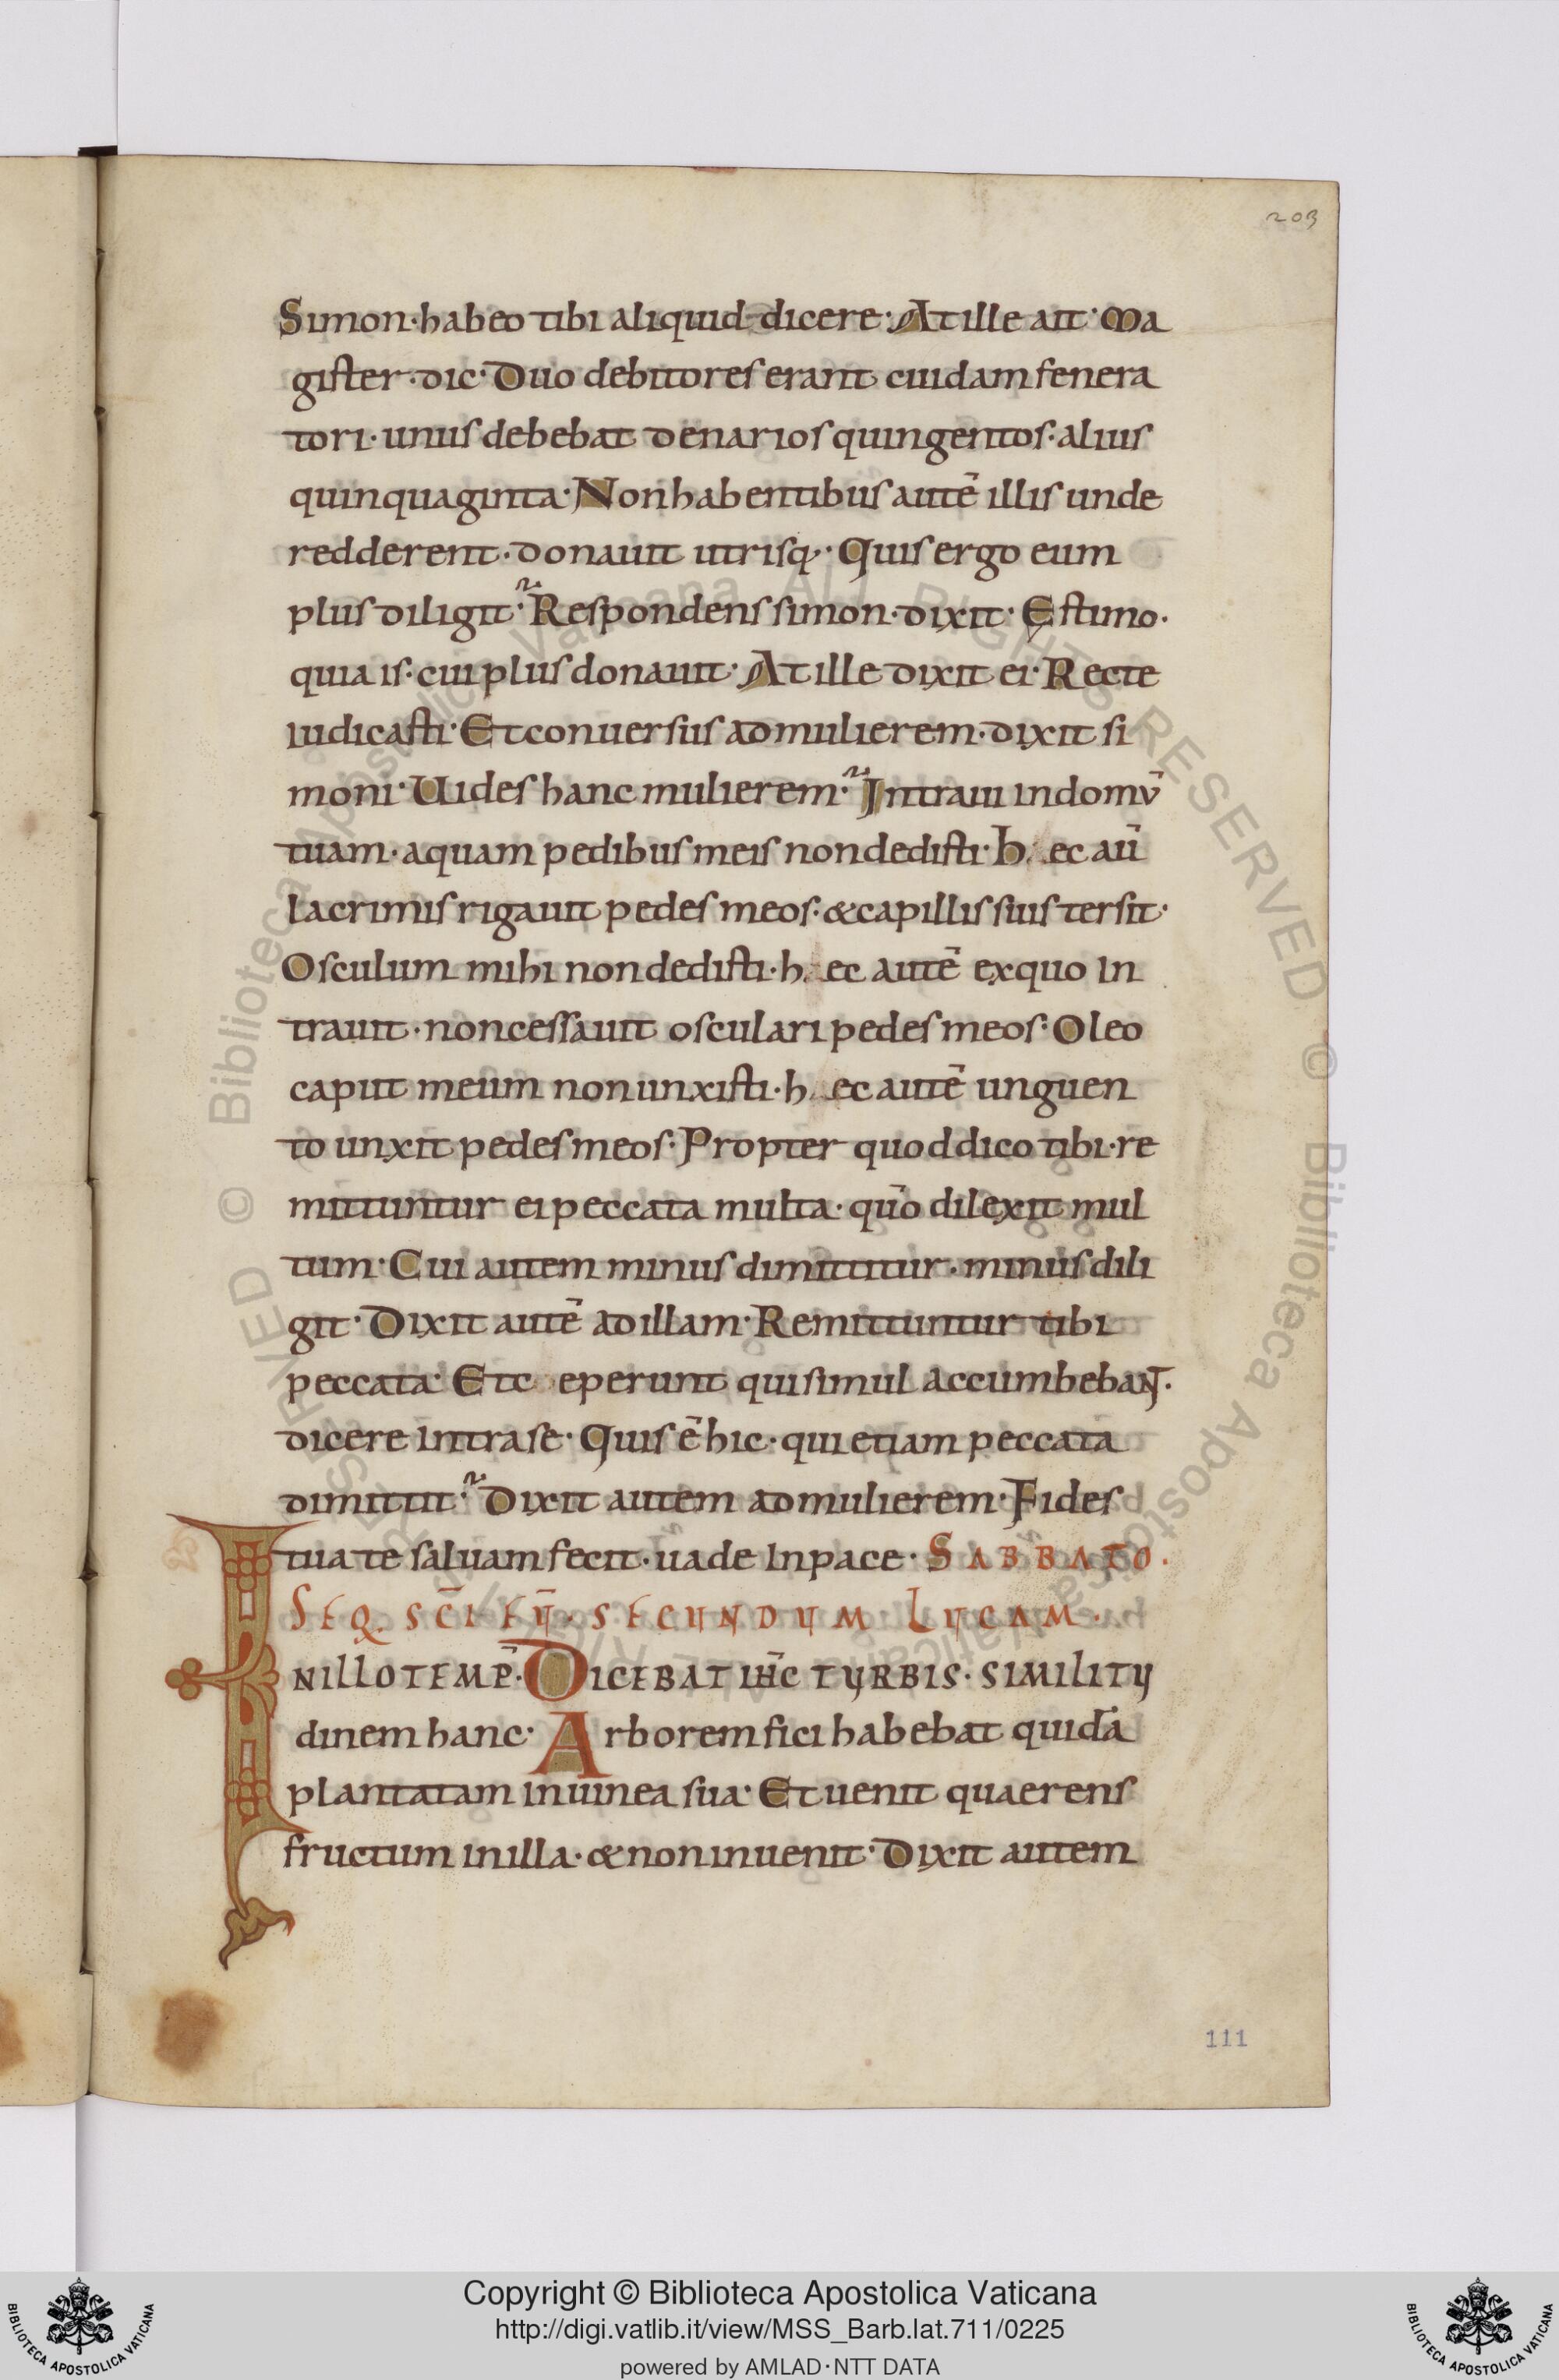 203
Simon·habeo tibi aliquid dicere·At ille ait·Ma
gister·dic·Duo debitores erant cuidam fenera
tori·unus debebat denarios quingentos·alius
quinquaginta·Non habentibus autē illis unde
redderent·donauit utrisq·Quis ergo eum
plus diligit? Respondens simon·dixit·Estimo·
quia is·cui plus donauit·At ille dixit ei·Recte
iudicasti·Et conuersus ad mulierem·dixit si
moni·Uides hanc mulierem? Intraui in domū
tuam·aquam pedibus meis non dedisti·h ec aū
lacrimis rigauit pedes meos·&capillis suis tersit·
Osculum mihi non dedisti·h ec autē ex quo in
trauit·non cessauit osculari pedes meos·Oleo
caput meum non unxisti·h ec autē unguen
to unxit pedes meos·Propter quod dico tibi·re
mittuntur ei peccata multa·quō dilexit mul
tum·Cui autem minus dimittitur·minus dili
git·Dixit autē ad illam·Remittuntur tibi
peccata·Et c eperunt qui simul accumbebant·
dicere intra se·Quis ē hic·qui etiam peccata
dimittit? Dixit autem ad mulierem·Fides
tua te saluam fecit·uade in pace·SABBATO·
SEQ. SC̄I EŪ·SECUNDUM LUCAM·
IN ILLO TEMP̄·DICEBAT IH̄C TURBIS·SIMILITU
dinem hanc·Arborem fici habebat quidā
plantatam in uinea sua·Et uenit quaerens
fructum in illa·&non inuenit·Dixit autem
111
© Biblioteca Apostolica Vaticana ALL RIGHTS RESERVED © Biblioteca Apostolica Vaticana ALL RIGHTS RESERVED
Copyright © Biblioteca Apostolica Vaticana
http://digi.vatlib.it/view/MSS_Barb.lat.711/0225
powered by AMLAD·NTT DATA
BIBLIOTECA APOSTOLICA VATICANA
BIBLIOTECA APOSTOLICA VATICANA